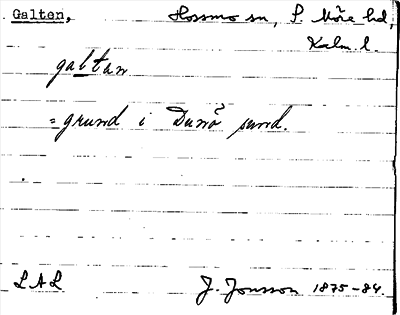 Galten, Hossmo sn, S. Möre hd,
Kalm. l.
galtan
= grund i Dunö sund.
LAL J. Jonsson 1875-84.